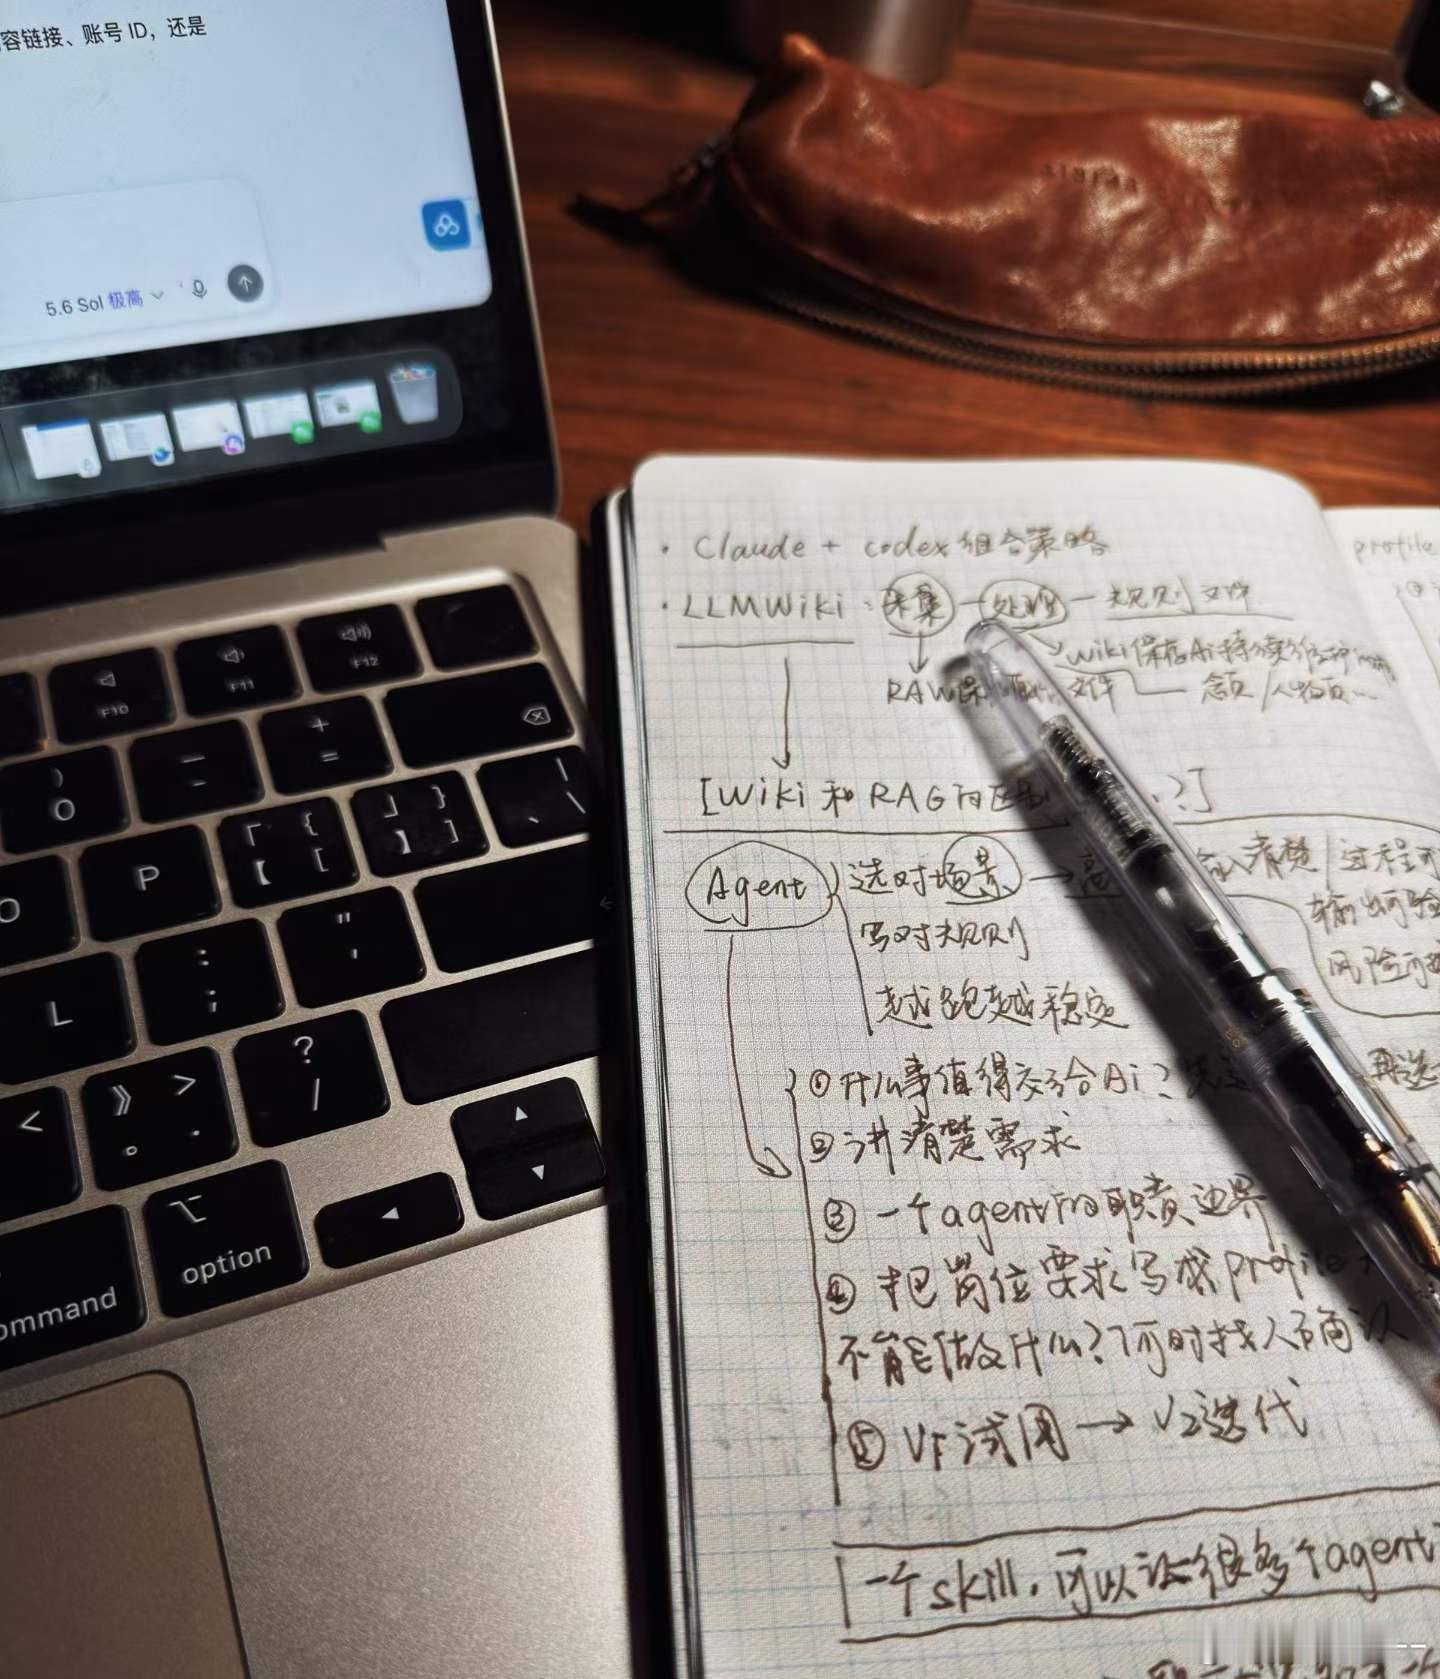 容链接、账号 ID，还是
5.6 Sol 极高
F10
F11
F12
+
=
O
P
L
?
/
command
option
· Claude + codex 组合策略
· LLMWiki : 采集 — 处理 — 规则文件
wiki 保存Ai持续维护
RAW保 文件 — 念页/人物页...
[Wiki 和 RAG的区别 ?]
Agent
选对场景 → 高 输入清楚/过程可
输出可验
风险可
写对规则
越跑越稳定
① 什么事值得交给Ai? 再选
② 讲清楚需求
③ 一个agent的职责边界
④ 把岗位要求写成profile +
不能做什么? 何时找人确认
⑤ V1试用 → V2迭代
一个skill, 可以让很多个agent
profile